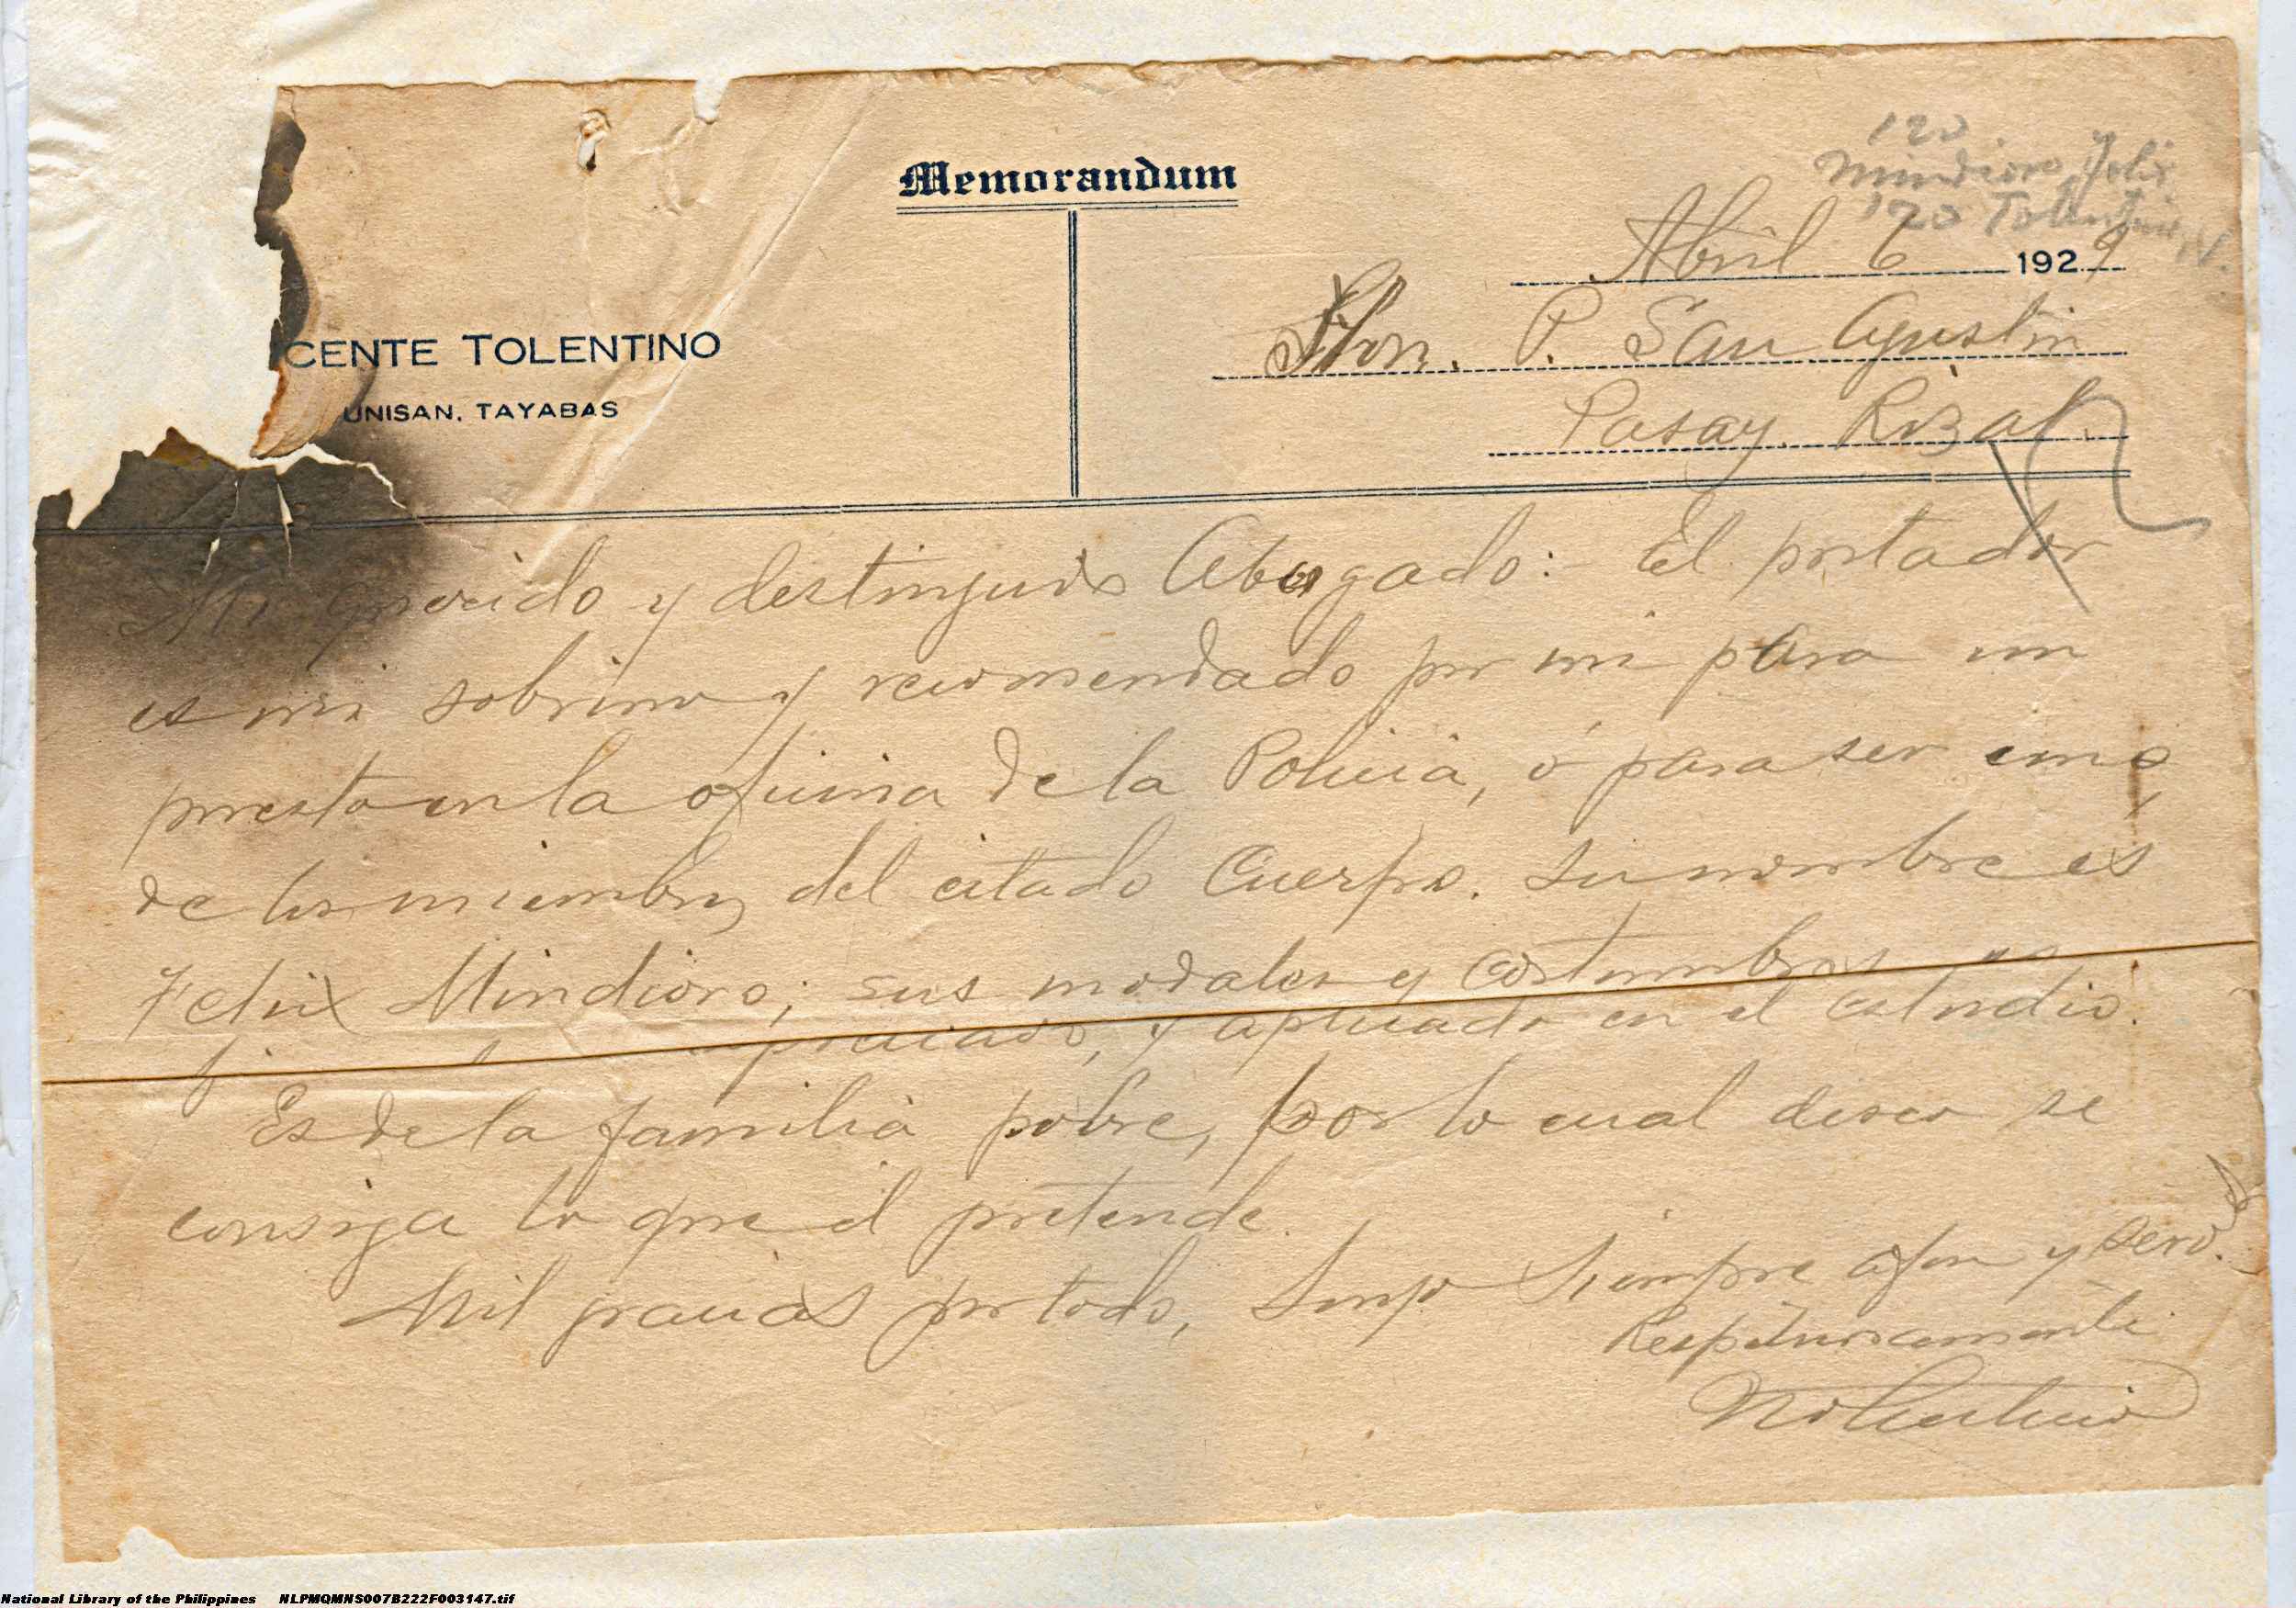 120
Mindioro, Felix
120 Tolentino, V.
Memorandum
Abril 6 1929
CENTE TOLENTINO
Hon. P. San Agustin
UNISAN, TAYABAS
Pasay, Rizal.
Mi querido y distinguido Abogado: El portador
es mi sobrino y recomendado por mi para un
puesto en la oficina de la Policia, ó para ser uno
de los miembros del citado Cuerpo. Su nombre es
Felix Mindioro; sus modales y costumbres
y aplicado en el estudio.
Es de la familia pobre, por lo cual deseo se
consiga lo que el pretende.
Mil gracias por todo, siempre afmo y serv.
Respetuosamente
VTolentino
National Library of the Philippines NLPMQMNS007B222F003147.tif